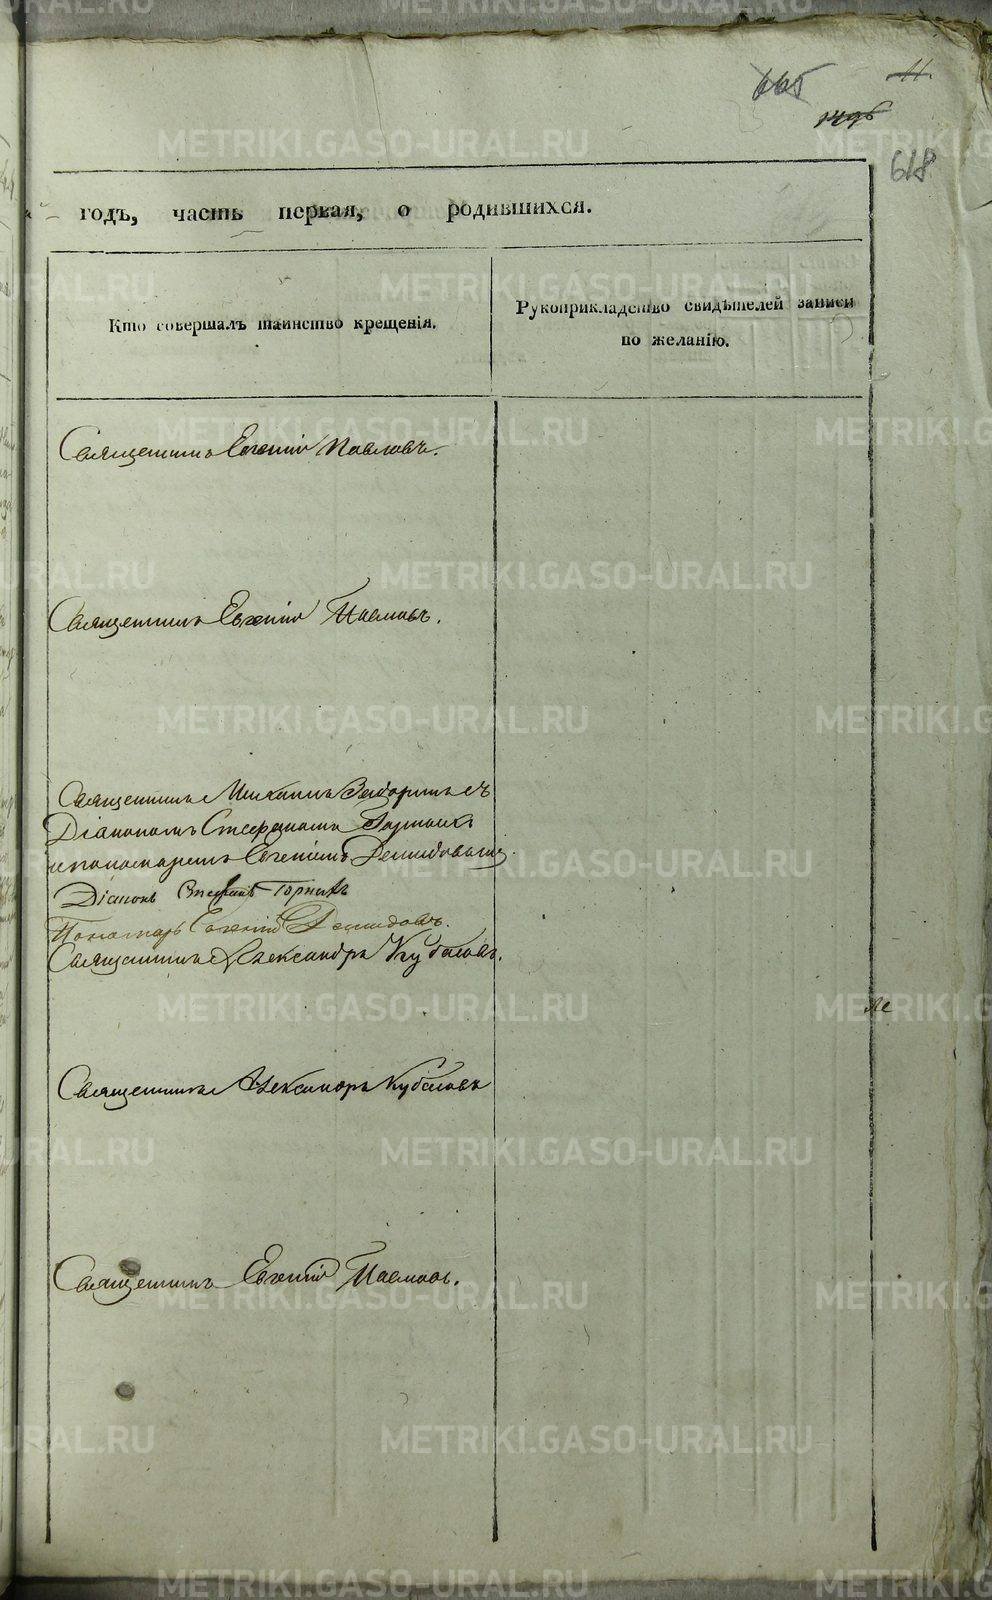 11.
665
1496
618
годъ, часть первая, о родившихся.
Кто совершалъ таинство крещенія.
Рукоприкладство свидѣтелей записи
по желанію.
Священникъ Евгеній Павловъ.
Священникъ Евгеній Павловъ.
Священникъ Михаилъ съ
Діакономъ Стефаномъ
и пономаремъ Евгеніемъ Демидовымъ
Діаконъ Стефанъ
Пономарь Евгеній Демидовъ.
Священникъ Александръ Кубасовъ.
Священникъ Александръ Кубасовъ
Священникъ Евгеній Павловъ.
METRIKI.GASO-URAL.RU